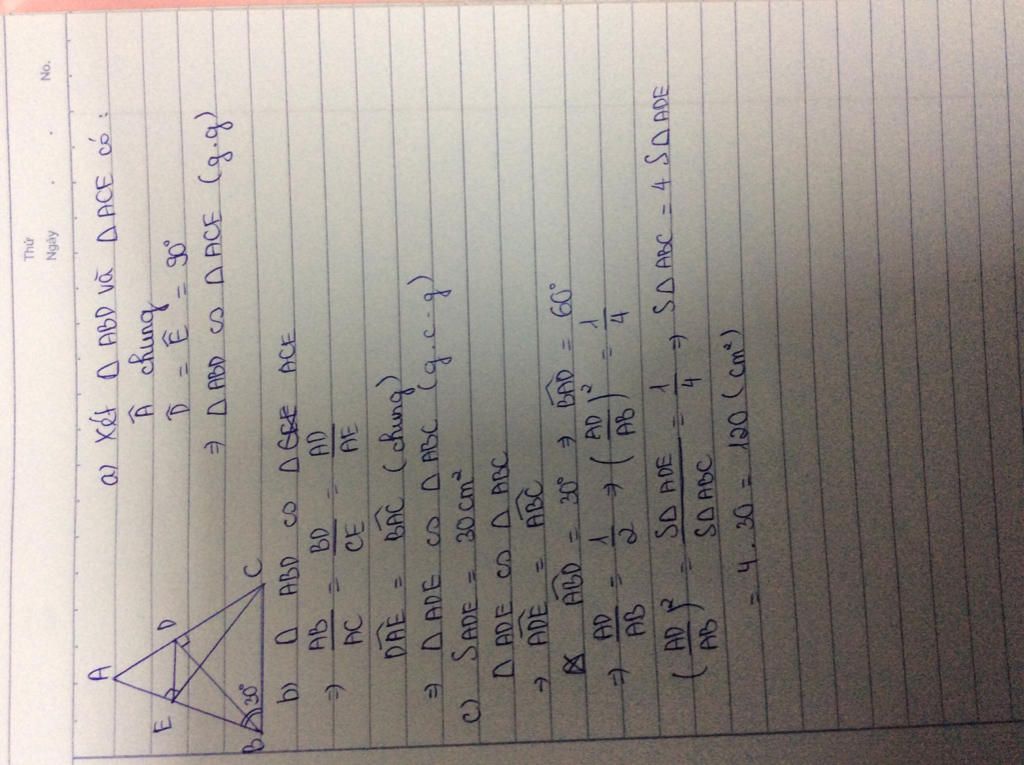 Thứ
Ngày
No.
a) Xét Δ ABD và Δ ACE có:
Â chung
D̂ = Ê = 90°
⇒ Δ ABD ∽ Δ ACE (g.g)
A
E
D
B
30°
C
b) Δ ABD ∽ Δ ACE
⇒ AB/AC = BD/CE = AD/AE
D̂AE = B̂AC (chung)
⇒ Δ ADE ∽ Δ ABC (g.c-g)
c) SADE = 30cm²
Δ ADE ∽ Δ ABC
→ ÂDE = ÂBC
ÂBD = 30° ⇒ B̂AD = 60°
⇒ AD/AB = 1/2 ⇒ (AD/AB)² = 1/4
(AD/AB)² = SΔADE/SΔABC = 1/4 ⇒ SΔABC = 4 SΔADE
= 4.30 = 120 (cm²)